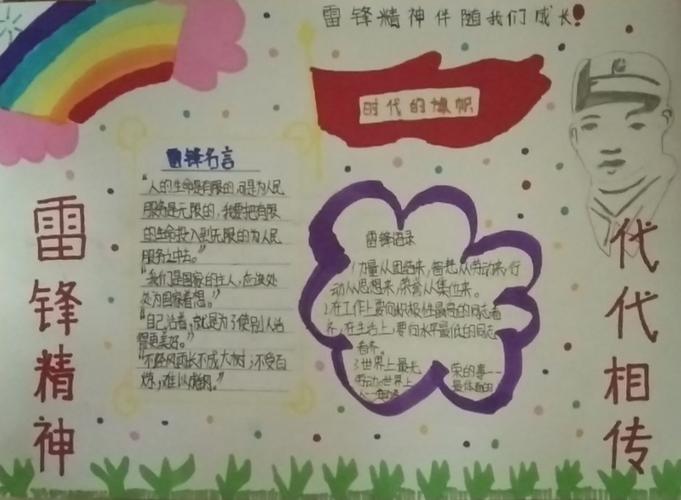 雷锋精神伴随我们成长!
时代的旗帜
雷锋名言
"人的生命是有限的,可是为人民
服务是无限的,我要把有限
的生命投入到无限的为人民
服务之中去。"
"我们是国家的主人,应该处
处为国家着想。"
"自己活着,就是为了使别人活
得更美好。"
"不经风雨长不成大树,不受百
炼,难以成钢。"
雷锋语录
1.力量从团结来,智慧从劳动来,行
动从思想来,荣誉从集体来。
2.在工作上,要向积极性最高的同志看
齐,在生活上,要向水平最低的同志
看齐。
3.世界上最光荣的事——
劳动。世界上最体面的
人——劳动者
雷锋精神
代代相传